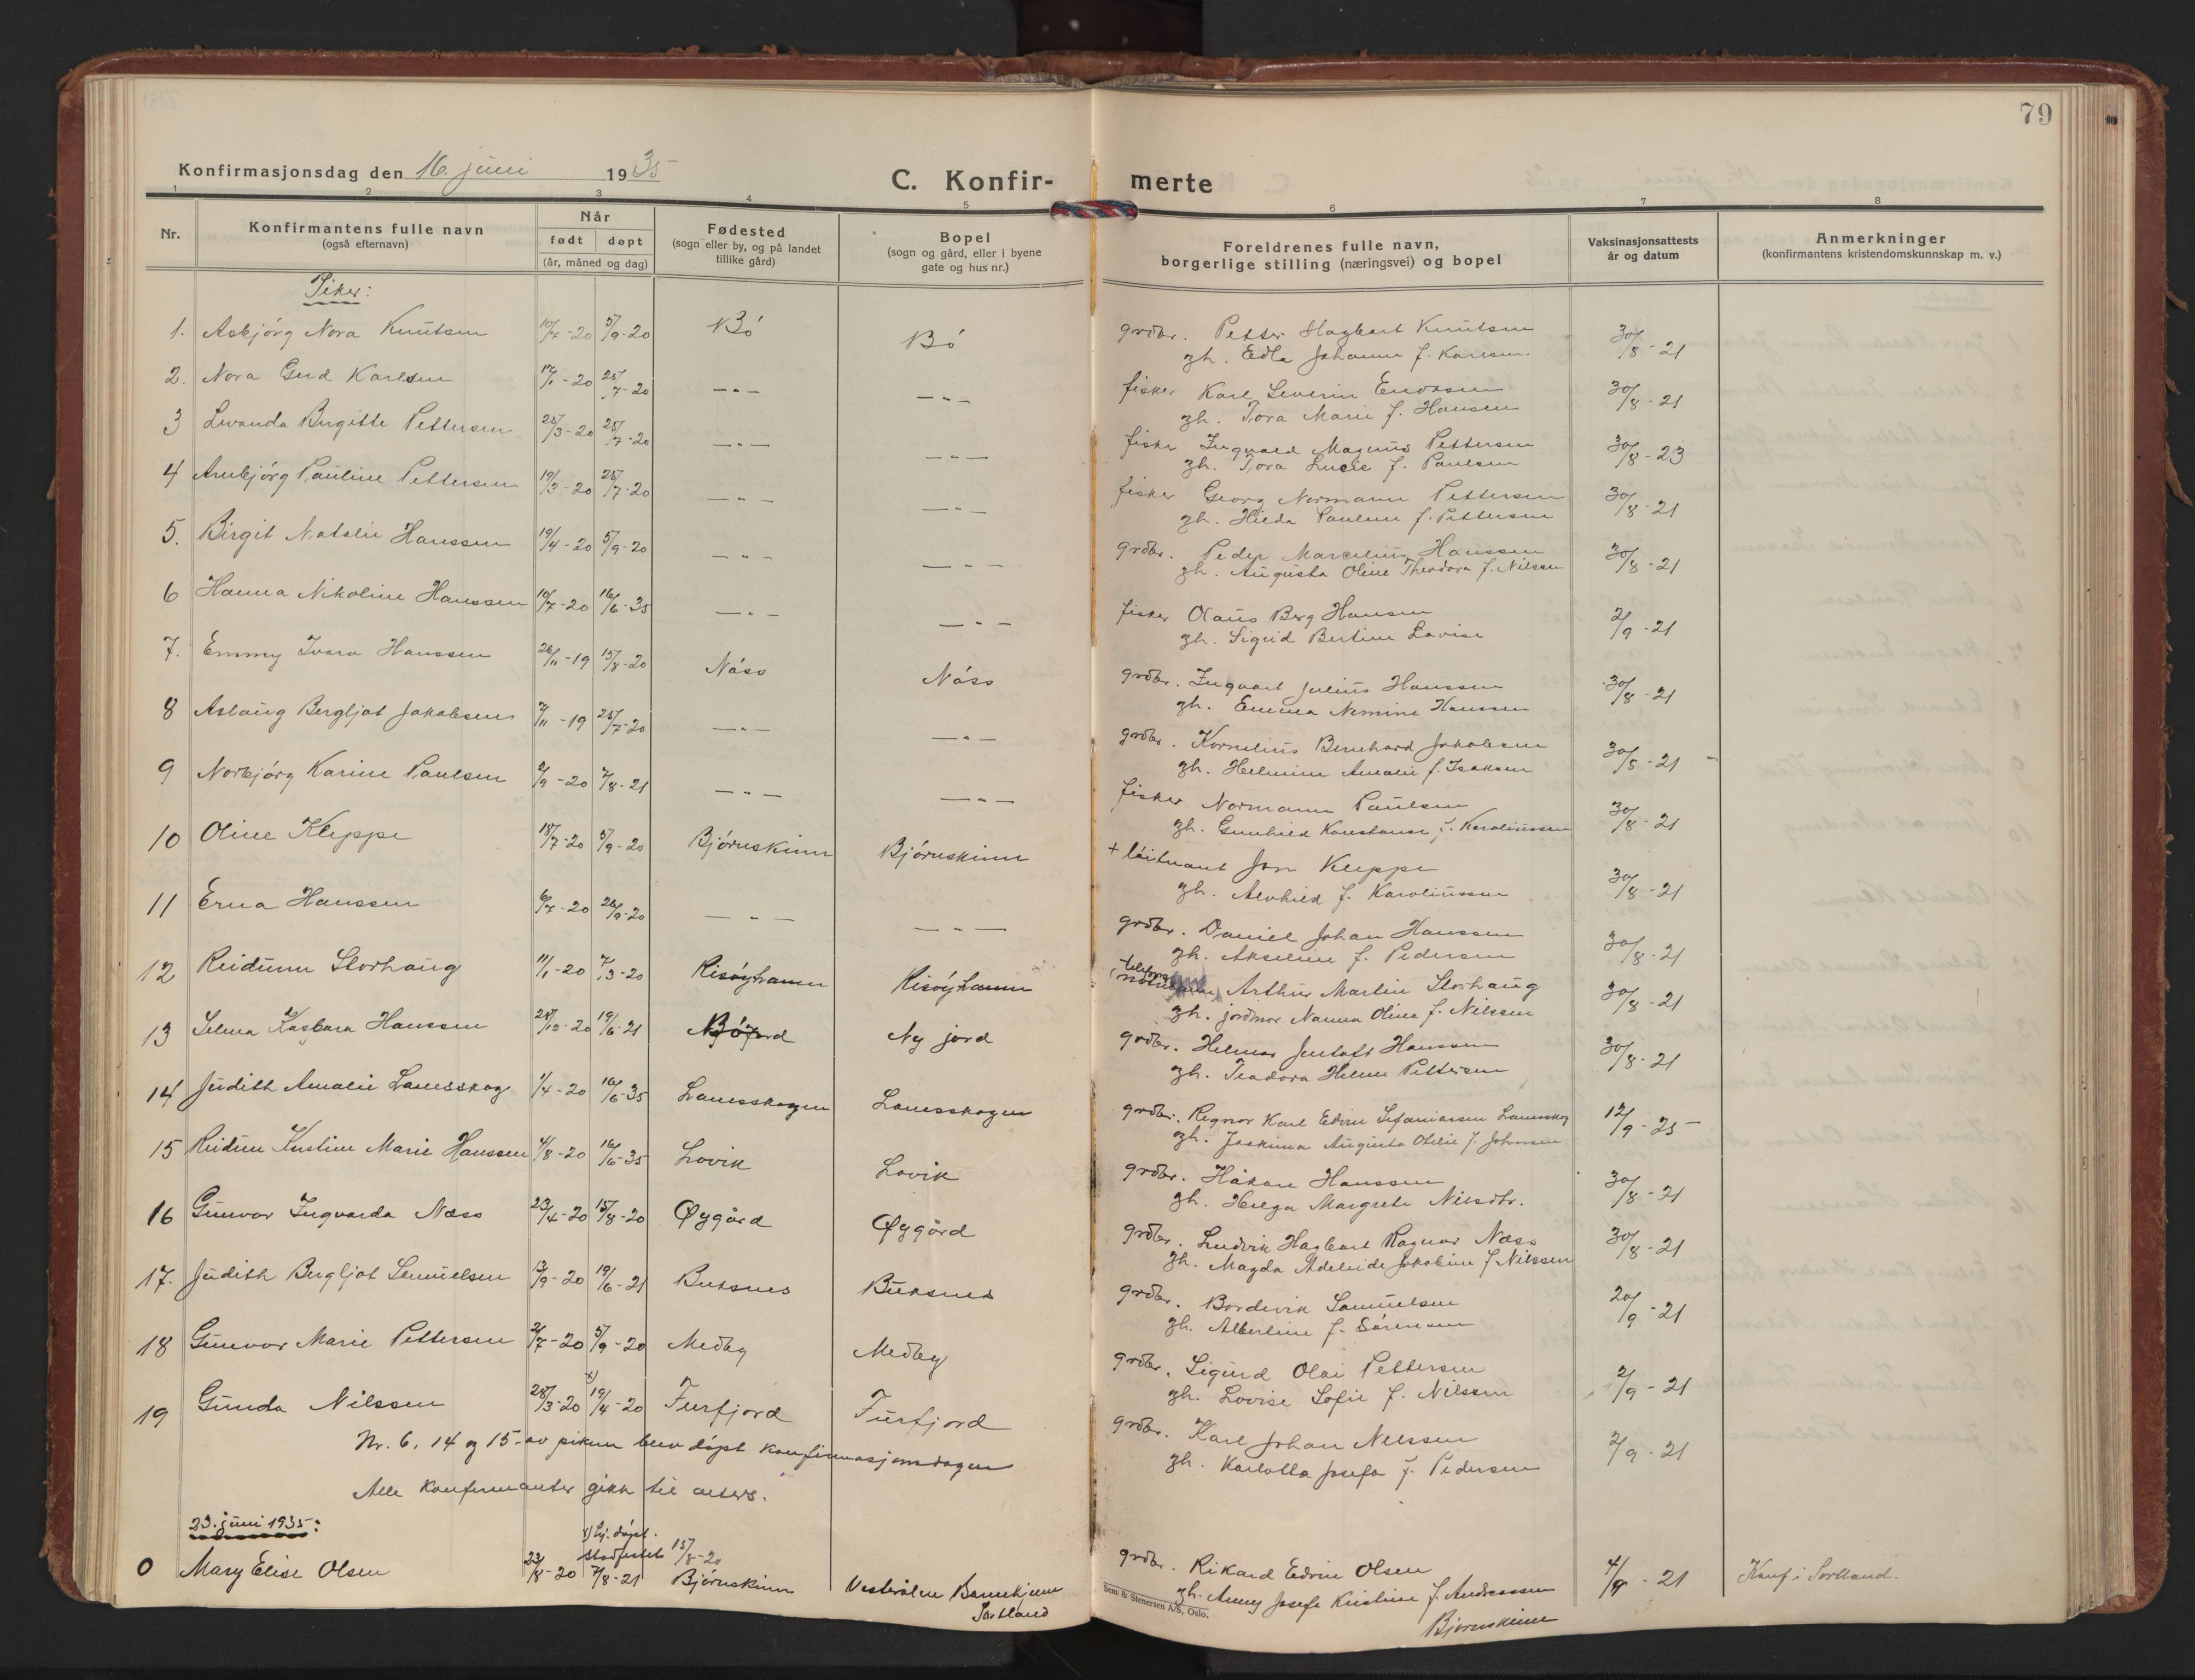 79
Konfirmasjonsdag den 16. juni 1935
C. Konfir- merte
1 2 3 4 5 6 7 8
Nr.
Konfirmantens fulle navn
(også efternavn)
Når
født døpt
(år, måned og dag)
Fødested
(sogn eller by, og på landet
tillike gård)
Bopel
(sogn og gård, eller i byene
gate og hus nr.)
Foreldrenes fulle navn,
borgerlige stilling (næringsvei) og bopel
Vaksinasjonsattests
år og datum
Anmerkninger
(konfirmantens kristendomskunnskap m. v.)
Piker:
1. Asbjörg Nora Knutsen 10/7-20 5/9-20 Bö Bö grdbr. Petter Hagbart Knutsen 30/8-21
gh. Edla Johanne f. Karlsen
2. Nora Gerd Karlsen 17/1-20 25/7-20 —"— —"— fisker Karl Severin Enoksen 30/8-21
gh. Tora Marie f. Hansen
3 Lovanda Birgitte Pettersen 25/3-20 25/7-20 —"— —"— fisker Ingvald Magnus Pettersen 30/8-23
gh. Tora Lucie f. Paulsen
4 Arnbjörg Pauline Pettersen 19/3-20 25/7-20 —"— —"— fisker Georg Normann Pettersen 30/8-21
gh. Hilda Pauline f. Pettersen
5. Birgit Natalie Hanssen 19/4-20 5/9-20 —"— —"— grdbr. Peder Marcelius Hanssen 30/8-21
gh. Augusta Oline Theodora f. Nilssen
6 Hanna Nikoline Hanssen 10/7-20 16/6-35 —"— —"— fisker Olaus Berg Hansen 2/9-21
gh. Sigrid Bertine Lovise
7. Emmy Ivara Hanssen 26/11-19 15/8-20 Nöss Nöss grdbr. Ingvart Julius Hanssen 30/8-21
gh. Emma Nemine Hanssen
8 Aslaug Bergljot Jakobsen 7/11-19 25/7-20 —"— —"— grdbr. Kornelius Bernhard Jakobsen 30/5-21
gh. Helmine Amalie f. Isaksen
9 Norbjörg Karine Paulsen 2/9-20 7/8-21 —"— —"— fisker Normann Paulsen 30/8-21
gh. Gunhild Konstanse f. Karoliussen
10 Oline Kleppe 18/7-20 5/9-20 Björnskinn Björnskinn + löitnant Jon Kleppe 30/8-21
gh. Alvhild f. Karoliussen
11 Erna Hanssen 6/7-20 26/9-20 —"— —"— grdbr. Daniel Johan Hanssen 30/8-21
gh. Akseline f. Pedersen
12 Reidunn Storhaug 11/1-20 7/3-20 Risöyhamn Risöyhamn Arthur Martin Storhaug 30/8-21
gh. jordmor Nanna Olina f. Nilssen
13 Selma Kasbara Hanssen 28/12-20 19/6-21 Ny jord grdbr. Helmar Gustaft Hanssen 30/8-21
gh. Teodora Helene Pettersen
14 Judith Amalie Lanesskog 1/4-20 16/6-35 Lanesskogen Lanesskogen grdbr. Regnor Karl Edvin Stefaniassen Lanesskog 12/9-25
gh. Joakima Augusta Otelie f. Johansen
15 Reidun Kirstine Marie Hanssen 4/8-20 16/6-35 Lovik Lovik grdbr. Håkon Hanssen 30/8-21
gh. Helga Margrete Nilsdtr.
16 Gunvor Ingvarda Næss 23/4-20 15/8-20 Øygård Øygård grdbr. Ludvik Hagbart Ragnar Næss 30/8-21
gh. Magda Adeleide Jakobine f Nilssen
17. Judith Bergljot Samuelsen 13/9-20 19/6-21 Buksnes Buksnes grdbr. Bordevik Samuelsen 20/9-21
gh. Albertine f. Sörensen
18 Gunvor Marie Pettersen 2/7-20 5/9-20 Medby Medby grdbr. Sigurd Olai Pettersen 2/9-21
gh. Lovise Sofie f. Nilssen
19 Gunda Nilssen 28/3-20 x) 19/4-20 Furfjord Furfjord grdbr. Karl Johan Nilssen 2/9-21
gh. Karlotta Josefa f. Pedersen
Nr. 6, 14 og 15 av pikene blev döpt konfirmasjonsdagen
Alle konfirmanter gikk til alters.
23. juni 1935:
x) hj. döpt.
stadfestet 15/8-20
0 Mary Elise Olsen 23/8-20 7/8-21 Björnskinn Vesterålen Barnehjem grdbr. Rikard Edvin Olsen 4/9-21 Konf. i Sortland.
Sortland gh. Anny Josefe Kristine f. Andreassen
Björnskinn
Sem & Stenersen A/S, Oslo.